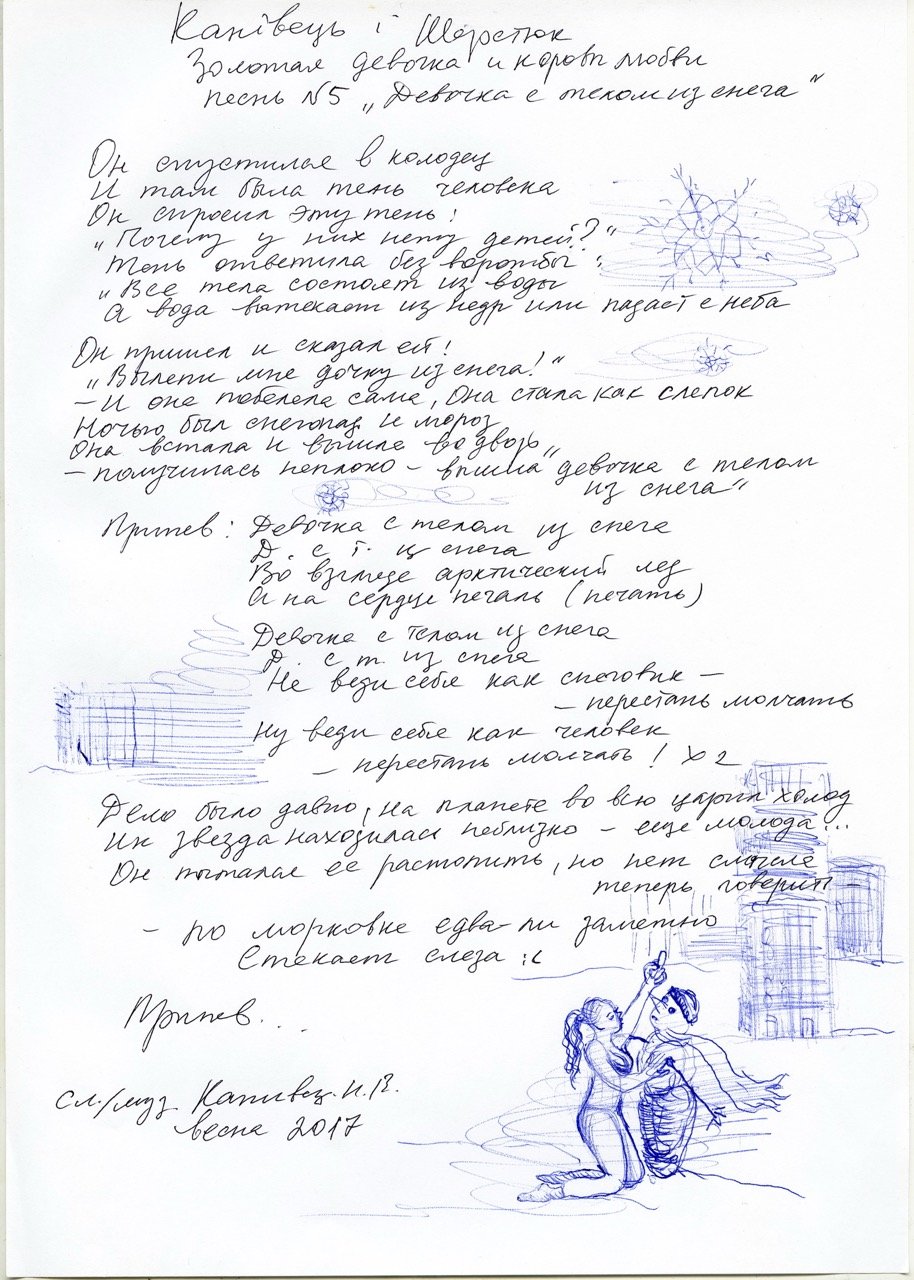 Канівець і Шерстюк
Золотая девочка и коровы любви
песнь №5 „Девочка с телом из снега"
Он спустился в колодец
И там была тень человека
Он спросил эту тень:
„Почему у них нету детей?"
Тень ответила без ворожбы:
„Все тела состоят из воды
А вода вытекает из недр или падает с неба
Он пришел и сказал ей:
„Вылепи мне дочку из снега!"
– И она побелела сама, Она стала как слепок
Ночью был снегопад и мороз
Она встала и вышла во двор
– получилась неплохо – вышла „девочка с телом
из снега"
Припев: Девочка с телом из снега
Д. с т. из снега
Во взгляде арктический лед
А на сердце печаль (печать)
Девочка с телом из снега
Д. с т. из снега
Не веди себя как снеговик –
– перестань молчать
Ну веди себя как человек
– перестань молчать! х2
Дело было давно, на планете во всю царил холод
Их звезда находилась неблизко – еще молода...
Он пытался ее растопить, но нет смысла
теперь говорить –
– по морковке едва-ли заметно
Стекает слеза :(
Припев...
сл./муз. Канівец. Н.В.
весна 2017